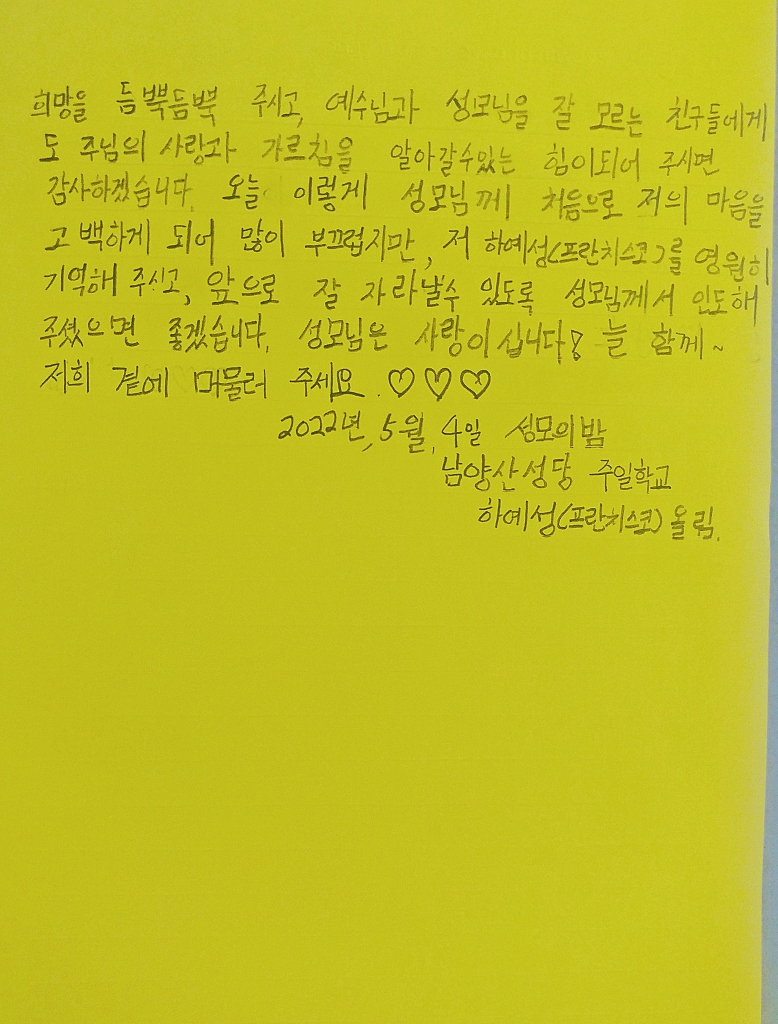 희망을 듬뿍듬뿍 주시고, 예수님과 성모님을 잘 모르는 친구들에게
도 주님의 사랑과 가르침을 알아갈수있는 힘이되어 주시면
감사하겠습니다. 오늘 이렇게 성모님께 처음으로 저의 마음을
고백하게 되어 많이 부끄럽지만, 저 하예성(프란치스코)를 영원히
기억해 주시고, 앞으로 잘 자라날수 있도록 성모님께서 인도해
주셨으면 좋겠습니다. 성모님은 사랑이십니다! 늘 함께~
저희 곁에 머물러 주세요. ♡♡♡
2022년, 5월, 4일 성모의밤
남양산성당 주일학교
하예성(프란치스코) 올림.